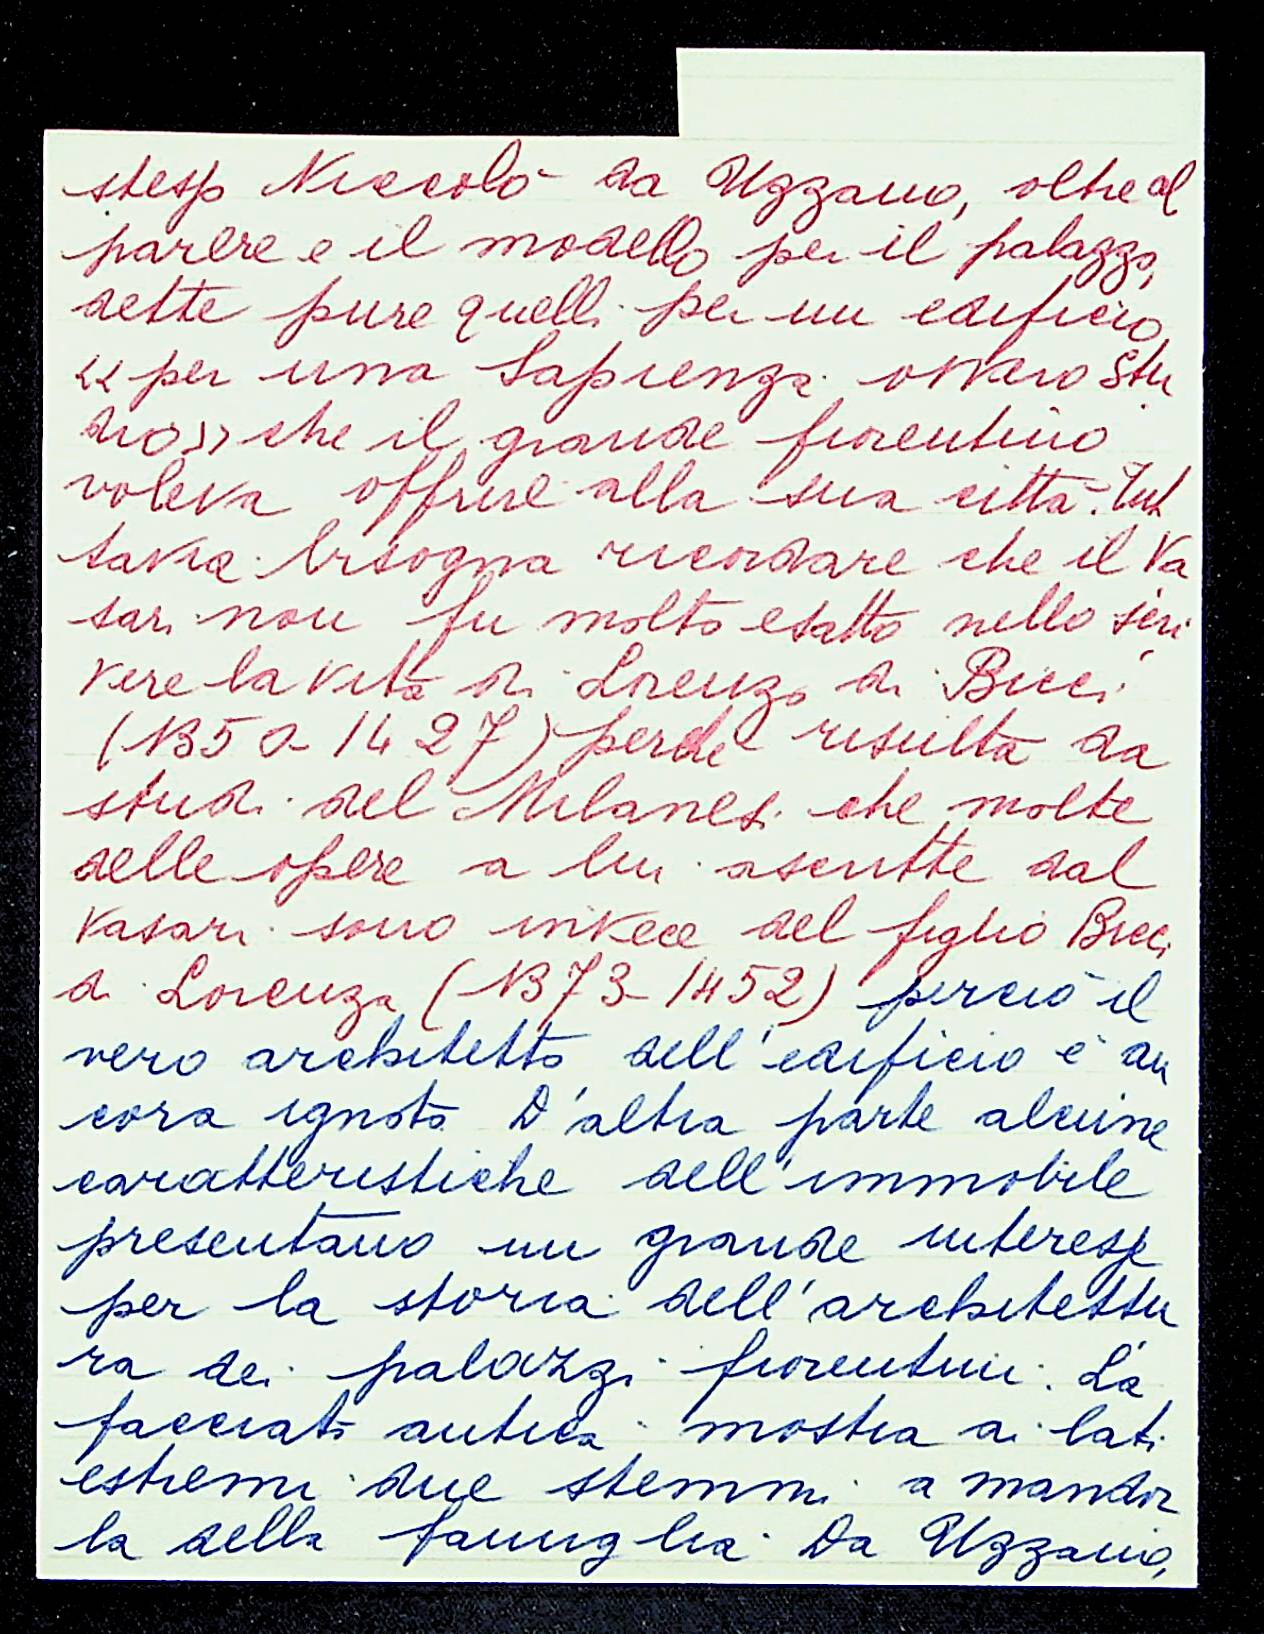 stesso Niccolò da Uzzano, oltre al
parere e il modello per il palazzo,
dette pure quelli per un edificio
<< per una Sapienza ovvero Stu
dio>> che il grande fiorentino
voleva offrire alla sua città. Tut
tavia bisogna ricordare che il Va
sari non fu molto esatto nello scri
vere la vita di Lorenzo di Bicci
(1350-1427) perché risulta da
studi del Milanesi che molte
delle opere a lui ascritte dal
Vasari sono invece del figlio Bicci
di Lorenzo (1373-1452) perciò il
vero architetto dell'edificio è an
cora ignoto D'altra parte alcune
caratteristiche dell'immobile
presentano un grande interesse
per la storia dell'architettu
ra dei palazzi fiorentini. La
facciata antica mostra ai lati
estremi due stemmi a mandor
la della famiglia Da Uzzano,